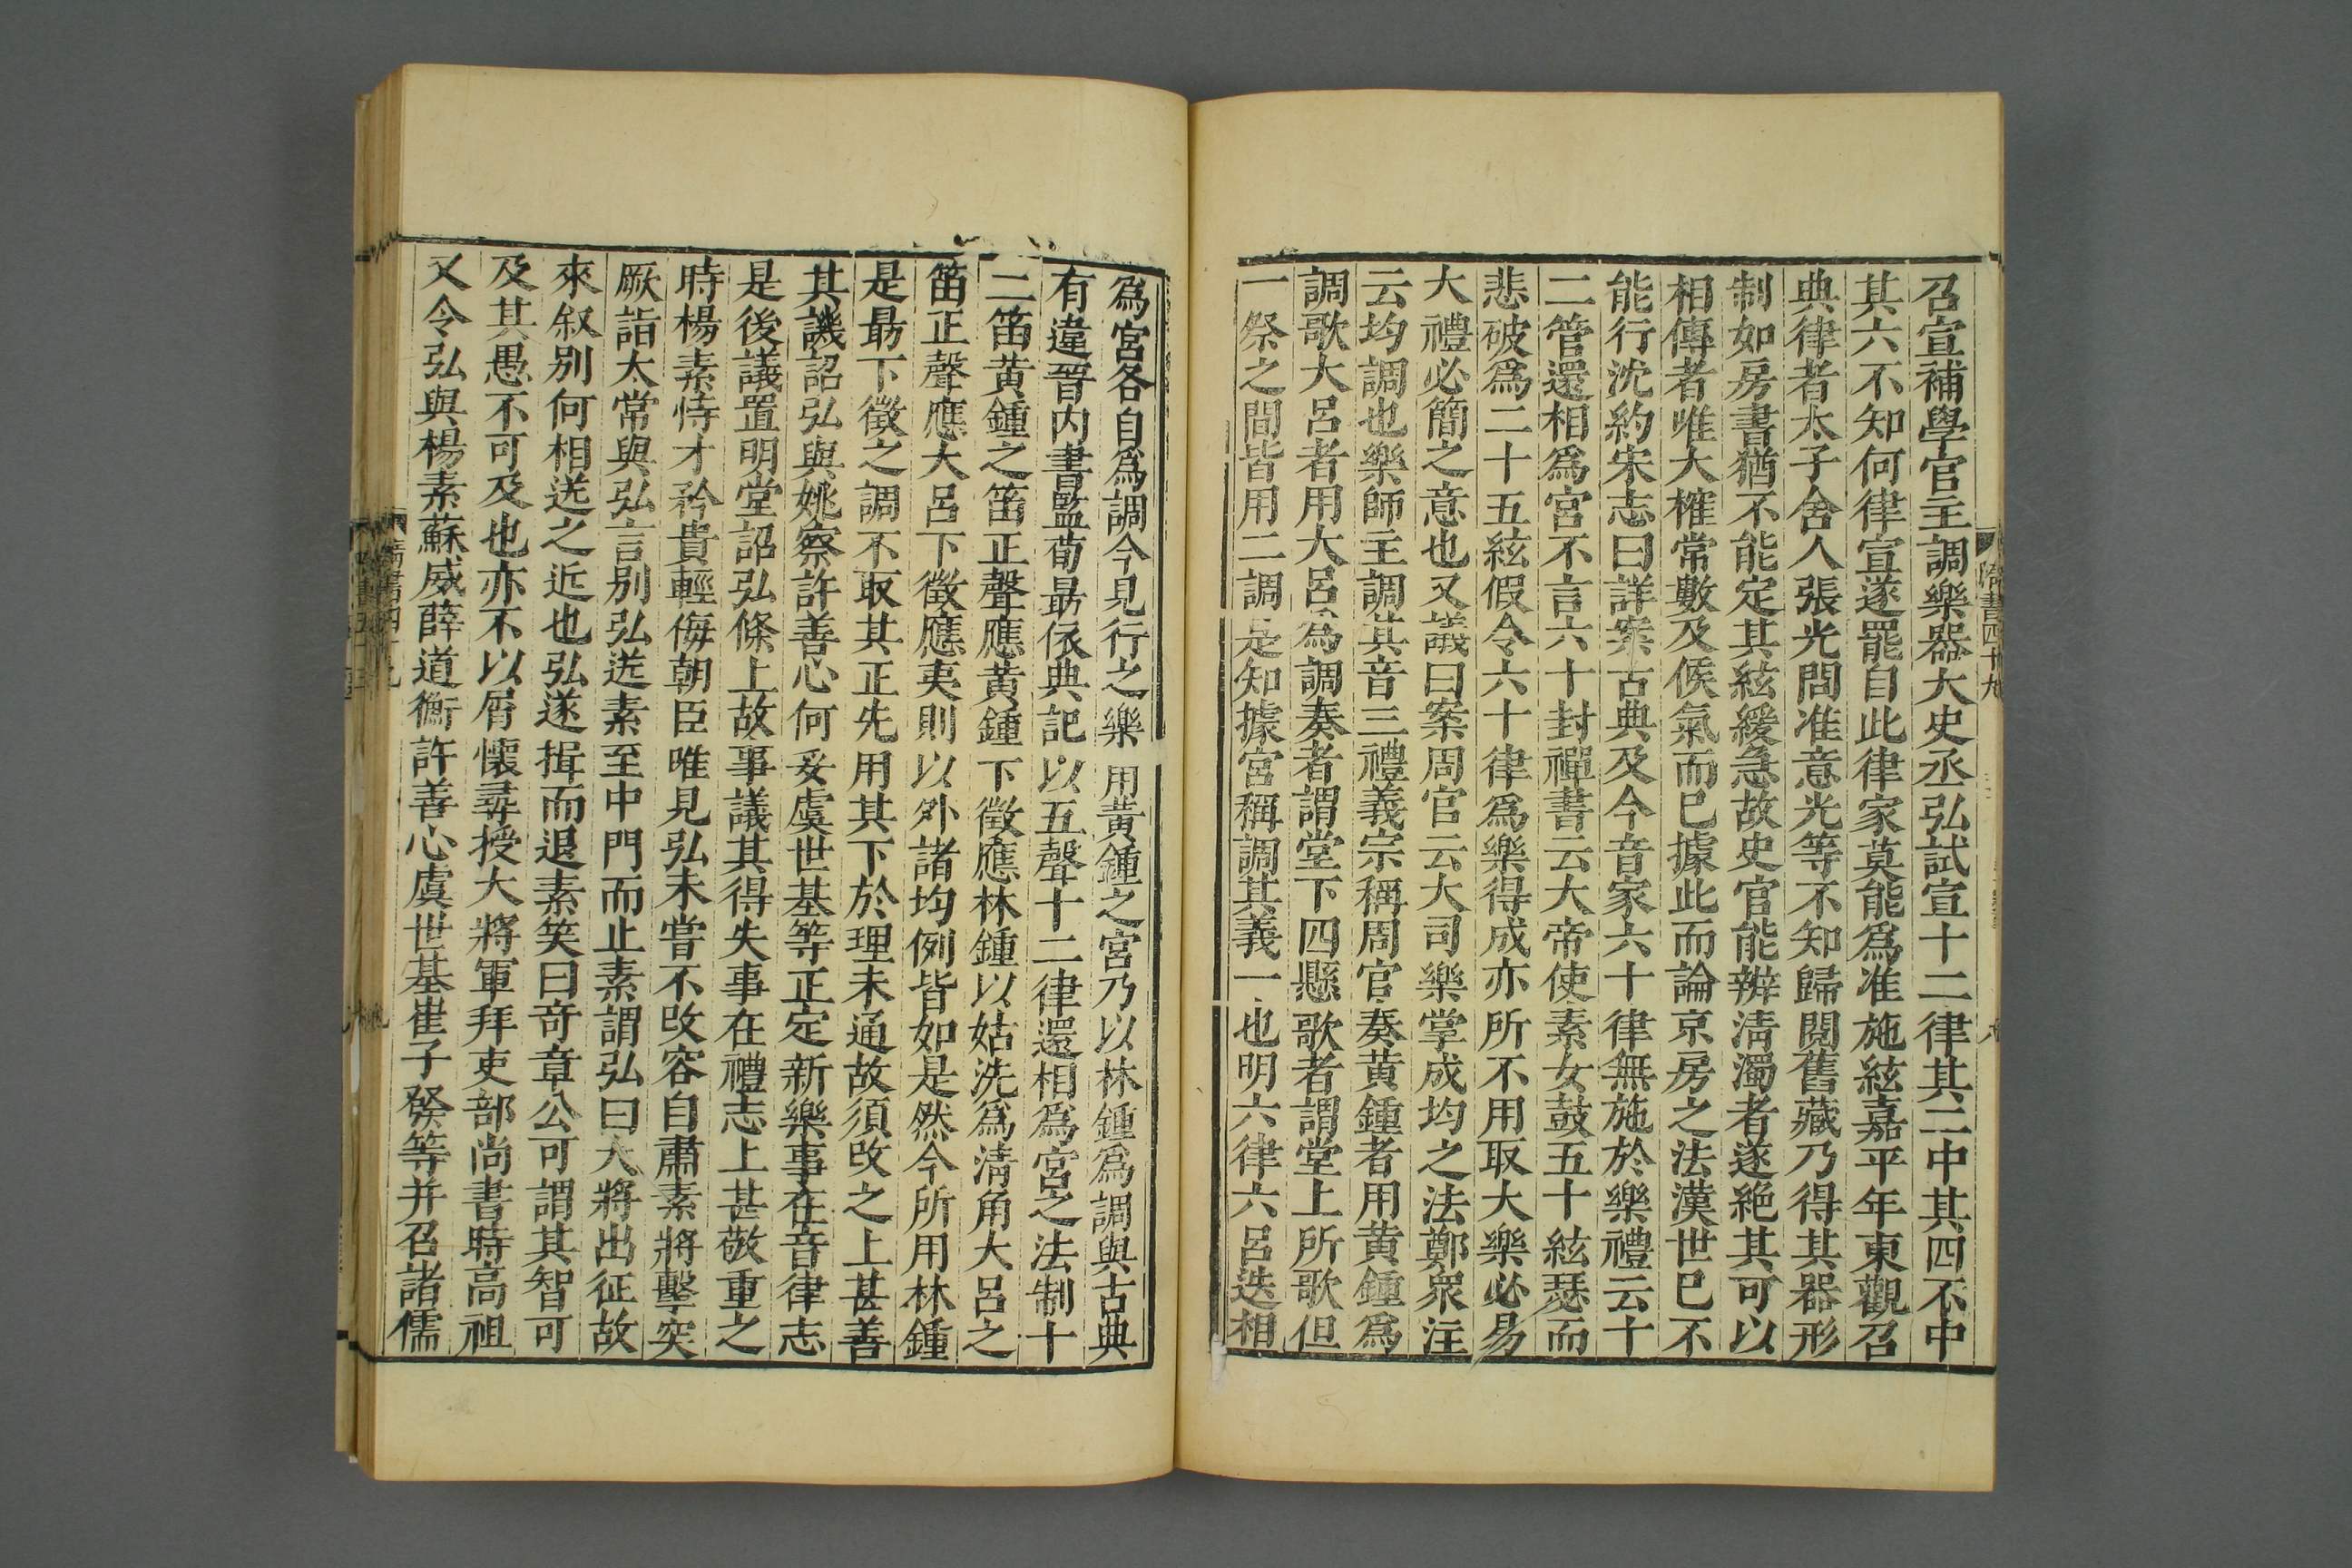 召宣補學官主調樂器大史丞弘試宣十二律其二中其四不中
其六不知何律宣遂罷自此律家莫能爲准施絃嘉平年東觀召
典律者太子舍人張光問准意光等不知歸閱舊藏乃得其器形
制如房書猶不能定其絃緩急故史官能辨清濁者遂絶其可以
相傳者唯大榷常數及候氣而已據此而論京房之法漢世已不
能行沈約宋志曰詳案古典及今音家六十律無施於樂禮云十
二管還相爲宮不言六十封禪書云大帝使素女鼓五十絃瑟而
悲破爲二十五絃假令六十律爲樂得成亦所不用取大樂必易
大禮必簡之意也又議曰案周官云大司樂掌成均之法鄭衆注
云均調也樂師主調其音三禮義宗稱周官奏黄鍾者用黄鍾爲
調歌大呂者用大呂爲調奏者謂堂下四懸歌者謂堂上所歌但
一祭之間皆用二調是知據宮稱調其義一也明六律六呂迭相
爲宮各自爲調今見行之樂用黄鍾之宮乃以林鍾爲調與古典
有違晉内書監荀勗依典記以五聲十二律還相爲宮之法制十
二笛黄鍾之笛正聲應黄鍾下徵應林鍾以姑洗爲清角大呂之
笛正聲應大呂下徵應夷則以外諸均例皆如是然今所用林鍾
是勗下徵之調不取其正先用其下於理未通故須改之上甚善
其議詔弘與姚察許善心何妥虞世基等正定新樂事在音律志
是後議置明堂詔弘條上故事議其得失事在禮志上甚敬重之
時楊素恃才矜貴輕侮朝臣唯見弘未嘗不改容自肅素將擊突
厥詣太常與弘言别弘送素至中門而止素謂弘曰大將出征故
來叙别何相送之近也弘遂揖而退素笑曰奇章公可謂其智可
及其愚不可及也亦不以屑懷尋授大將軍拜吏部尚書時高祖
又令弘與楊素蘇威薛道衡許善心虞世基崔子發等并召諸儒
隋書四十九